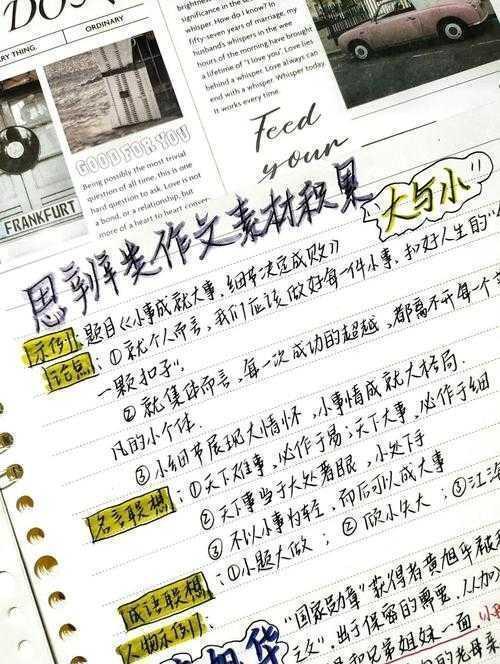 DON
RY THING.
ORDINARY
brightness
significance in the
whisper. How do I know? In
fifty-seven years of marriage, my
husbands whispers in the wee
hours of the morning have brought
a lifetime of "I love you". Love lies
behind a whisper. Love always can
end with a Whisper. Whisper today
It works every time.
Feed
your
GOOD FOR YOU
Being possibly the most trivial
question of all time, this is one
hard question to ask. Love is not
a bond, or a relationship, but
more of a heart to heart conver
FRANKFURT
思辨类作文素材积累
大与小
示例: 题目《小事成就大事,细节决定成败》
论点: ①就个人而言,我们应该做好每一件小事、扣好人生的"
一颗扣子".
②就集体而言,每一次成功的超越,都离不开每一个
凡的小个体.
③小细节展现大情怀,小事情成就大格局.
名言联想: ①天下难事,必作于易;天下大事,必作于细
②天下事当于大处着眼,小处下手
③不以小事为轻,而后可以成大事
成语联想: ①小题大做; ②因小失大; ③江海
人物示例: "国家勋章"获得者黄旭华被
之父".出于保密的需要,从加
和兄弟姐妹一面
的老母亲
旭华